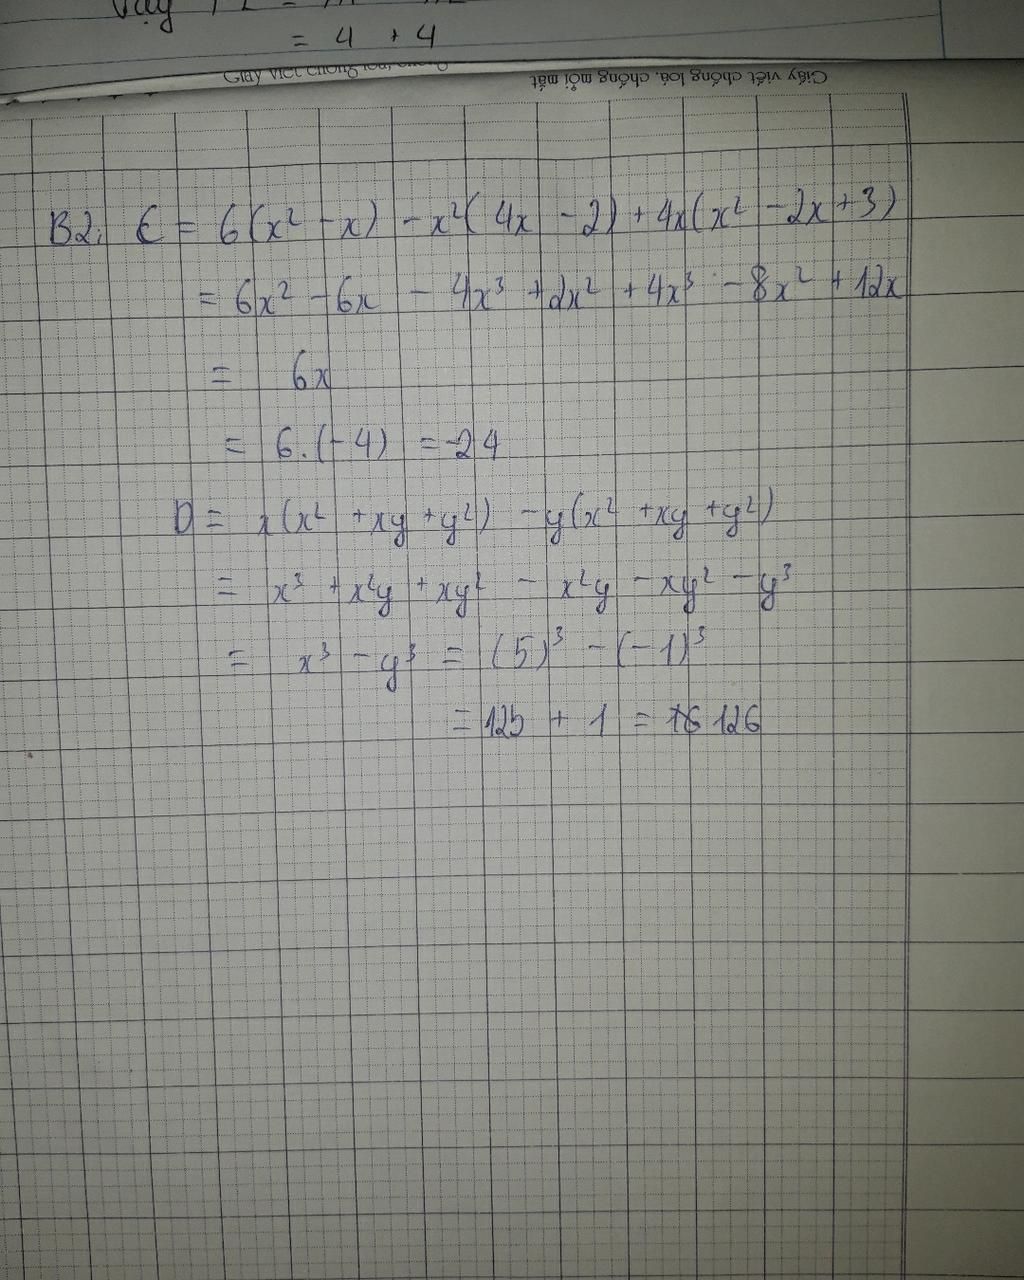 = 4 + 4
Giấy viết chống loá, chống mỏi mắt
B2, C = 6(x² - x) - x²(4x - 2) + 4x(x² - 2x + 3)
= 6x² - 6x - 4x³ + 2x² + 4x³ - 8x² + 12x
= 6x
= 6.(-4) = -24
D = x(x² + xy + y²) - y(x² + xy + y²)
= x³ + x²y + xy² - x²y - xy² - y³
= x³ - y³ = (5)³ - (-1)³
= 125 + 1 = 126